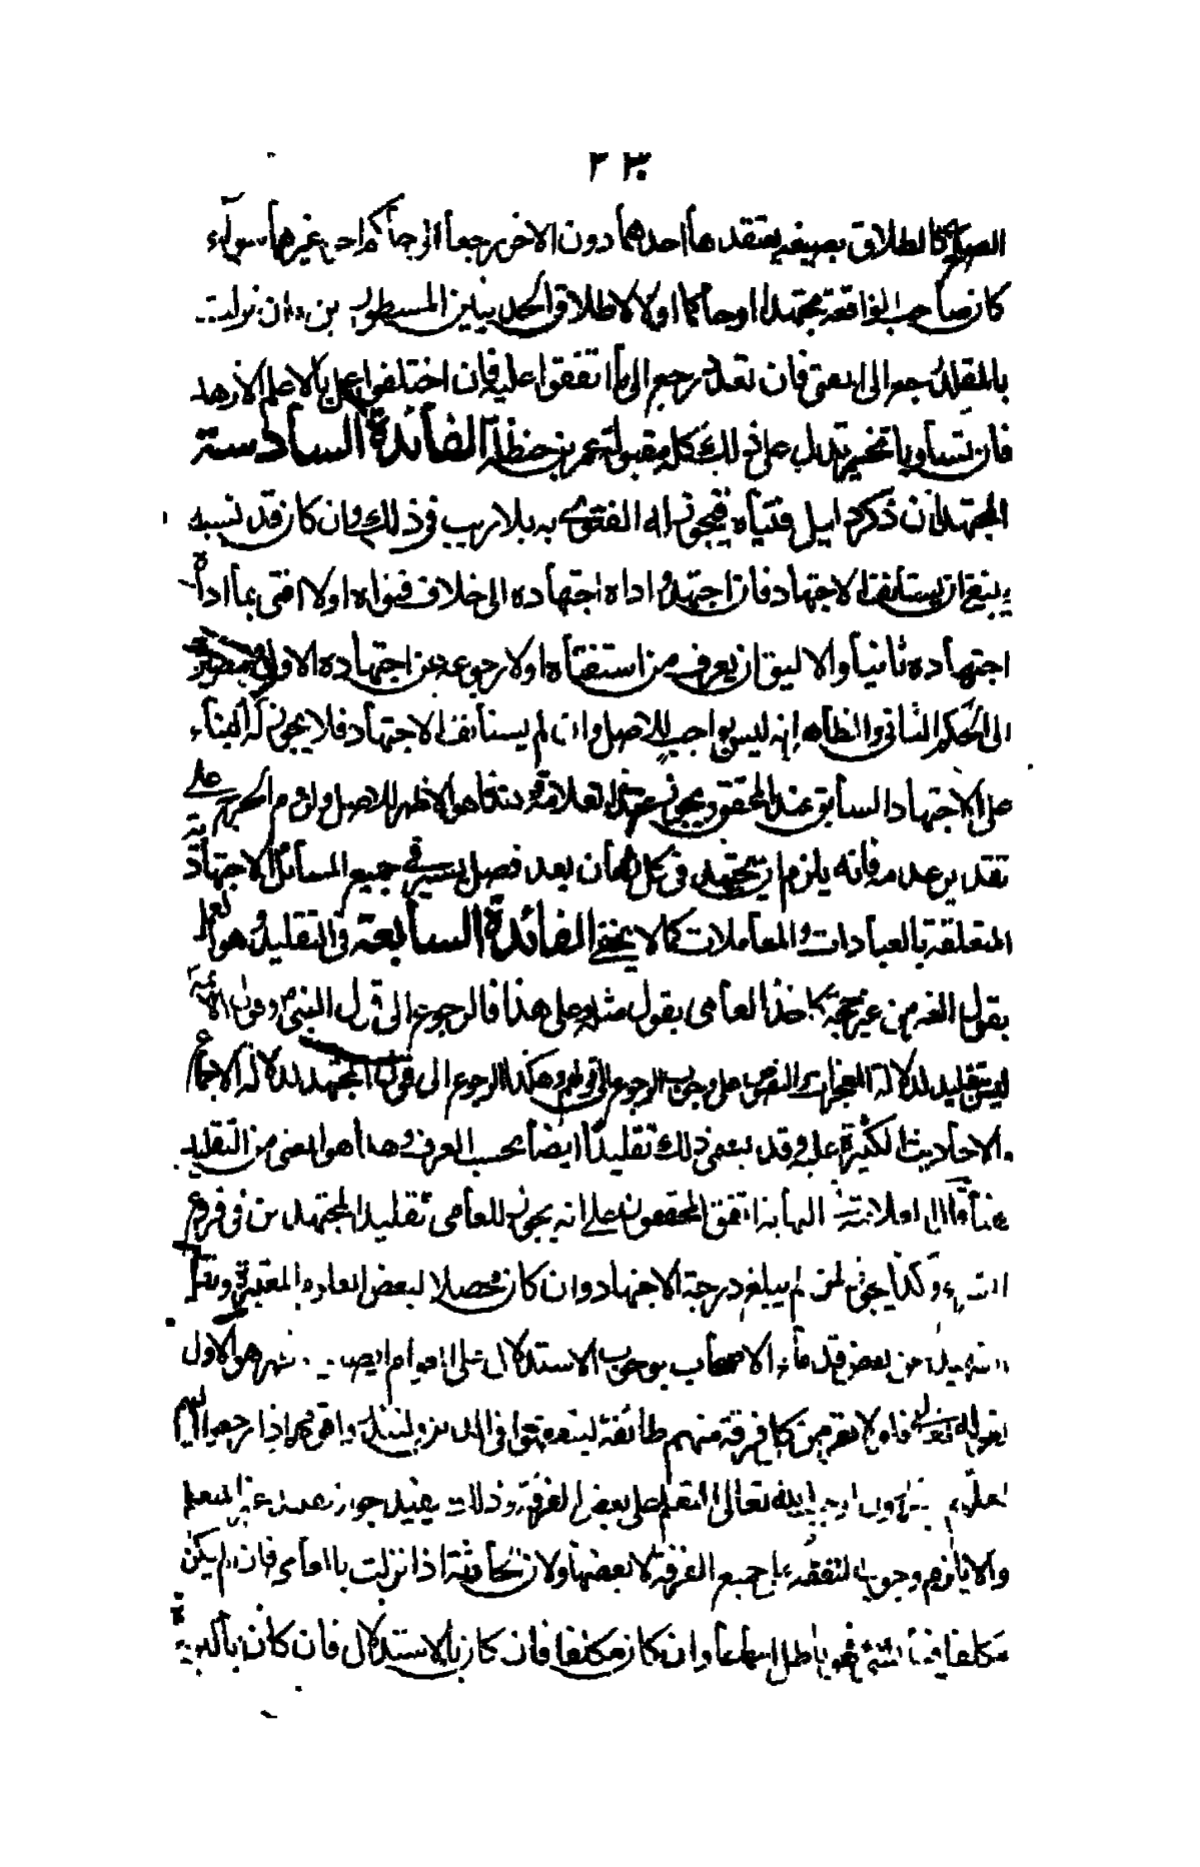 ٢٣
كالطلاق بصيغة يعتقدها احدهما دون الاخر رجعا الى حاكم اخر غيرهما سواء
كان صاحب الواقعة مجتهدا او حاكما اولا لاطلاق وان نزلت
بالمقلد رجع الى المفتى فان تعدد رجع الى ما اتفقوا عليه فان اختلفوا عمل بالاعلم الازهد
فان تساويا تخير يدل على ذلك كله مقبولة عمر بن حنظلة الفائدة السادسة
المجتهد ان ذكر دليل فتياه فيجوز له الفتوى به بلا ريب فى ذلك وان كان قد نسيه
ينبغى ان يستأنف الاجتهاد فان اجتهد واداه اجتهاده الى خلاف فتواه اولا افتى بما اداه
اجتهاده ثانيا والاليق ان يعرف من استفتاه اولا رجوعه عن اجتهاده الاول
الى الحكم الثانى والظاهر انه ليس بواجب للاصل وان لم يستأنف الاجتهاد فلا يجوز له البناء
على الاجتهاد السابق عند المحقق ويجوز عند العلامة هو الاظهر للاصل ولزوم الحرج على
تقدير عدمه فانه يلزم ان يجتهد فى كل زمان بعد فصل يسير فى جميع المسائل الاجتهادية
المتعلقة بالعبادات والمعاملات كما لا يخفى الفائدة السابعة فى التقليد وهو العمل
بقول الغير من غير حجة كاخذ العامى بقول مثله وعلى هذا فالرجوع الى قول النبى وقول الائمة
ليس تقليد لدلالة المعجزات والنصوص على وجوب الرجوع الى قولهم وهكذا الرجوع الى قول المجتهد لدلالة الاجماع
والاحاديث الكثيرة عليه وقد يسمى ذلك تقليدا ايضا بحسب العرف وهذا هو المعنى من التقليد
اتفق المحققون على انه يجوز للعامى تقليد المجتهدين فى فروع
وكذا يجوز لمن لم يبلغ درجة الاجتهاد وان كان محصلا لبعض
عن بعض قدماء الاصحاب بوجوب الاستدلال على العوام هو الاول
لقوله تعالى فلولا نفر من كل فرقة منهم طائفة ليتفقهوا فى الدين ولينذروا قومهم اذا رجعوا اليهم
لعلهم الله تعالى التعلم على بعض الفرقة وذلك يفيد جواز
والا يلزم وجوب التفقه على جميع الفرقة لا بعضها ولان الحادثة اذا نزلت بالعامى فان لم يكن
مكلفا فيها بشىء فهو باطل اجماعا وان كان مكلفا فان كان بالاستدلال فان كان